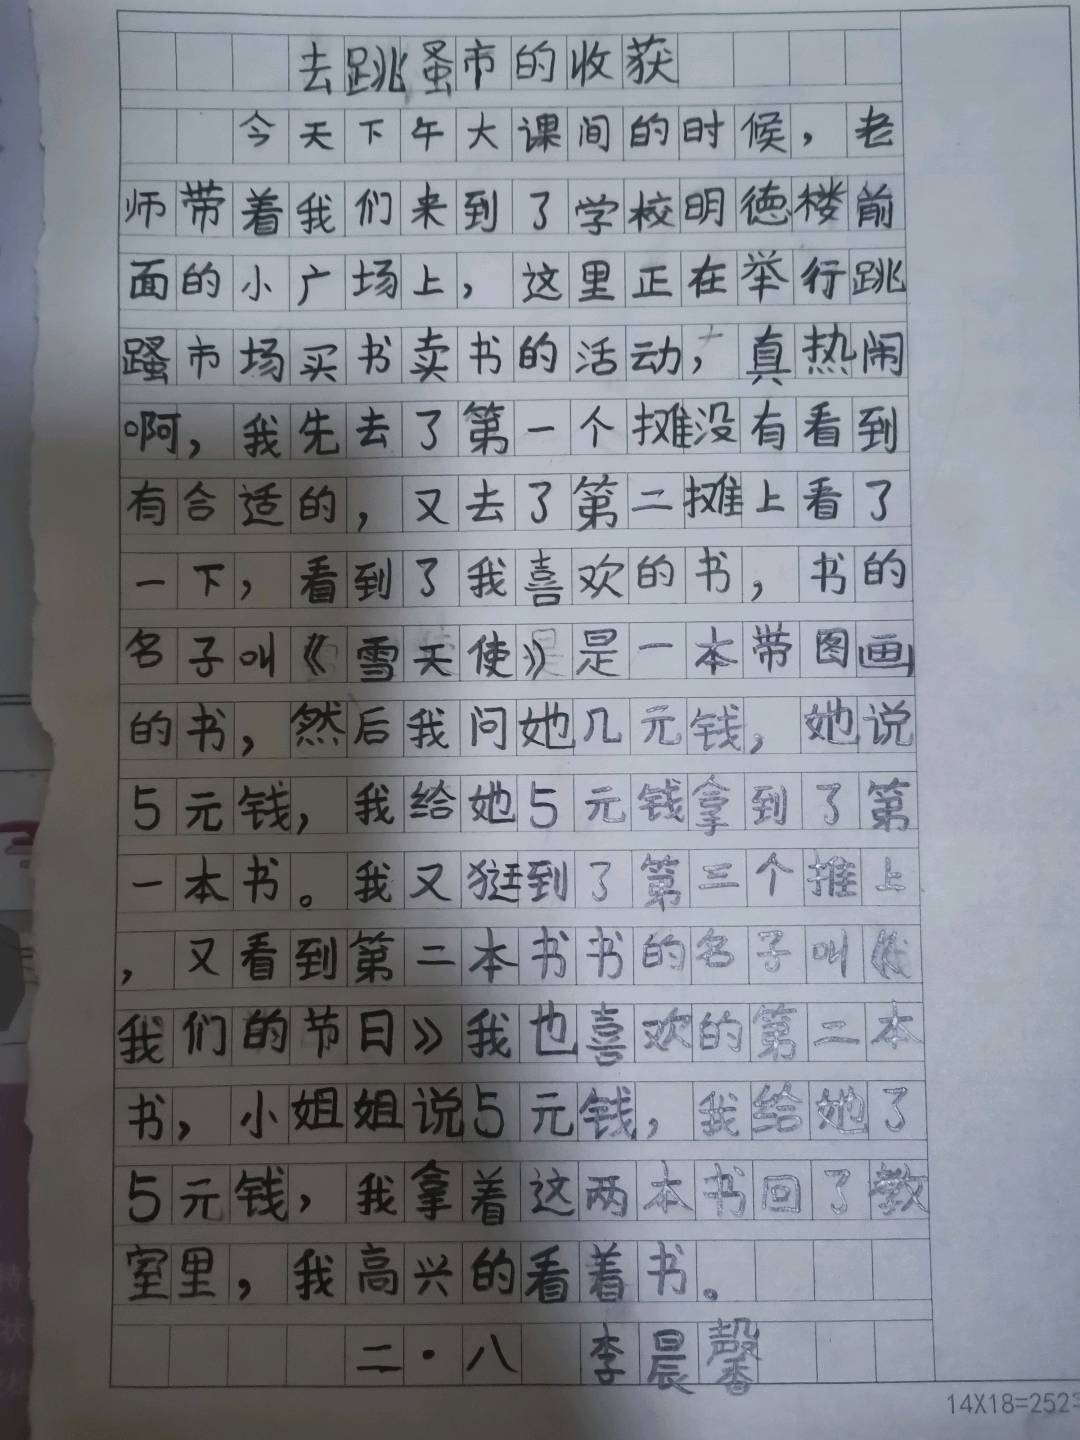 去跳蚤市的收获
今天下午大课间的时候，老
师带着我们来到了学校明德楼前
面的小广场上，这里正在举行跳
蹂市场买书卖书的活动，真热闹
啊，我先去了第一个摊没有看到
有合适的，又去了第二摊上看了
一下，看到了我喜欢的书，书的
名子叫《雪天使》是一本带图画
的书，然后我问她几元钱，她说
5元钱，我给她5元钱拿到了第
一本书。我又逛到了第三个推上
，又看到第二本书书的名子叫《
我们的节日》我也喜欢的第二本
书，小姐姐说5元钱，我给她了
5元钱，我拿着这两本书回了教
室里，我高兴的看着书。
二·八 李晨馨
14X18=252